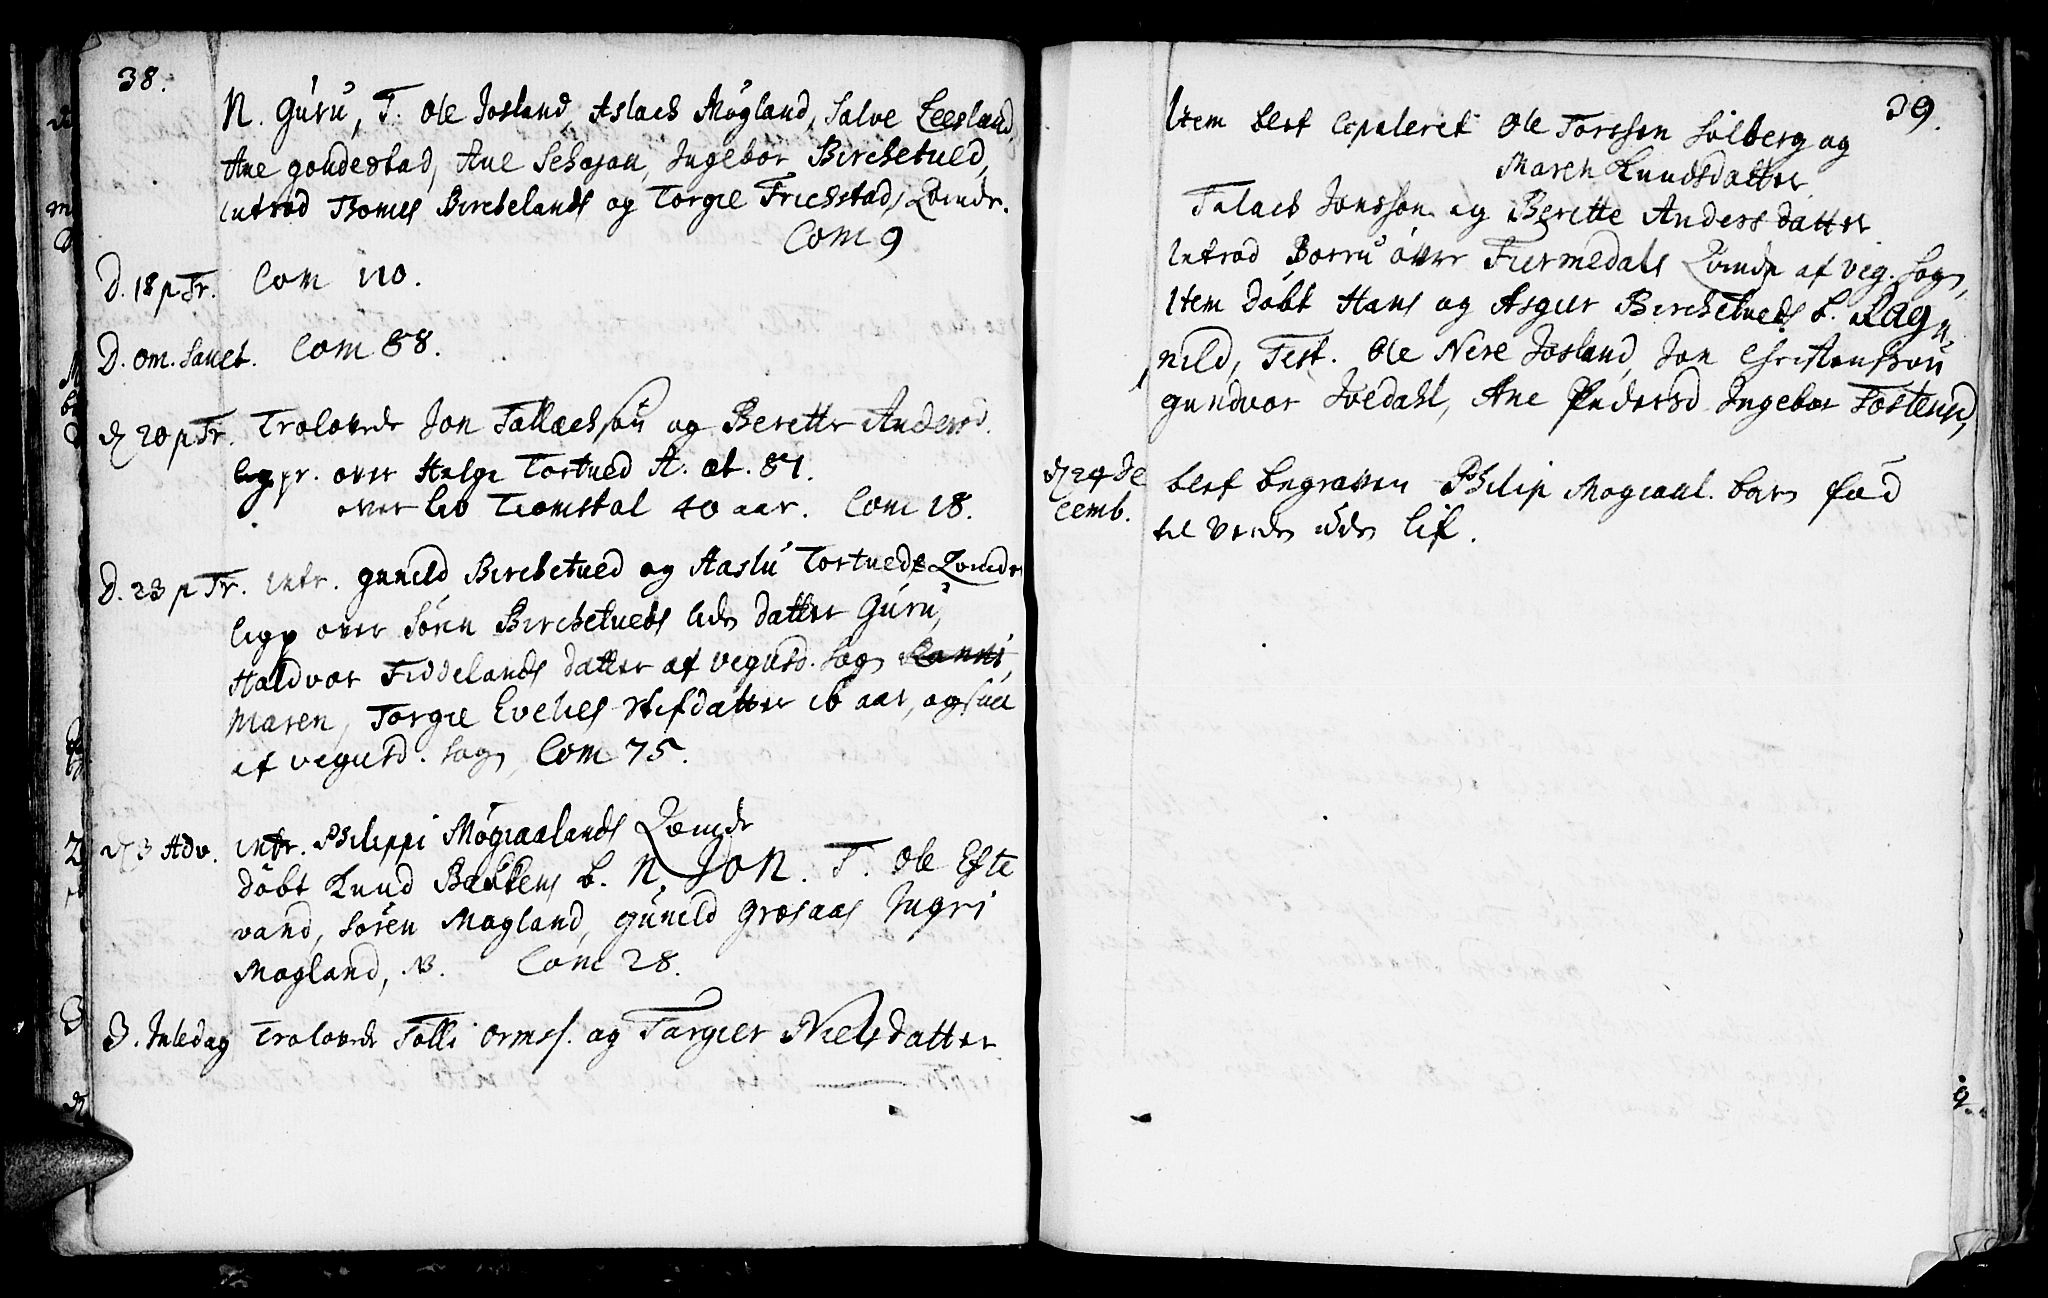 38.
N. Guru, T. Ole Josland, Aslach Møgland, Salve Leesland,
Ane gondestad, Ane Ingebor Birchetued,
introd Thomes Birchelands og Torgie Frichstads Qvinde.
Com 9
D. 18 p Tr. Com 110.
D. Om. Sanct. Com 88.
D 20 p Tr. Trolovede Jon Tallachsøn og Berette Andersd.
ligpr. over Helge Tortued A. æt. 87.
over Liv Tiomstøl 40 aar. Com 18.
D. 23 p Tr. intr. gunild Birchetued og Aaslu Tortueds Qvinde
ligp over Sören Birchetueds lide datter Guru,
Haldvor Fiddelands datter af vegusd. Sogn
Maren, Torgie Evelies Stifdatter 16 aar, og
af vegusd. Sogn, Com 75.
D 3 Adv. intr. Philippi Møgiaalands Qvinde
döbt Knud Bakkens b. N. JON. T. Ole Efte
vand, Sören Møgland, gunild græsaas Ingri
Møgland, NB. Com 28.
3. Juledag Trolovede Tolli Orms. og Targier Nielsdatter
39.
Item blef Copuleret Ole Torsson Sölberg og
Maren Knudsdatter
Talach Jonsson og Berette Anders datter
Introd Borru övre Fiermedals Qvinde af veg. Sogn,
Item döbt Hans og Asgier Birchetueds b. Rag
nild, Test. Ole Nere Josland, Jon Christensøn
gundvor Ivedahl, Ane Pedersd Ingebor Tostensd,
D 24 De
cemb. blef begraven Philip Mogiaal. barn fød
til Verden uden lif.